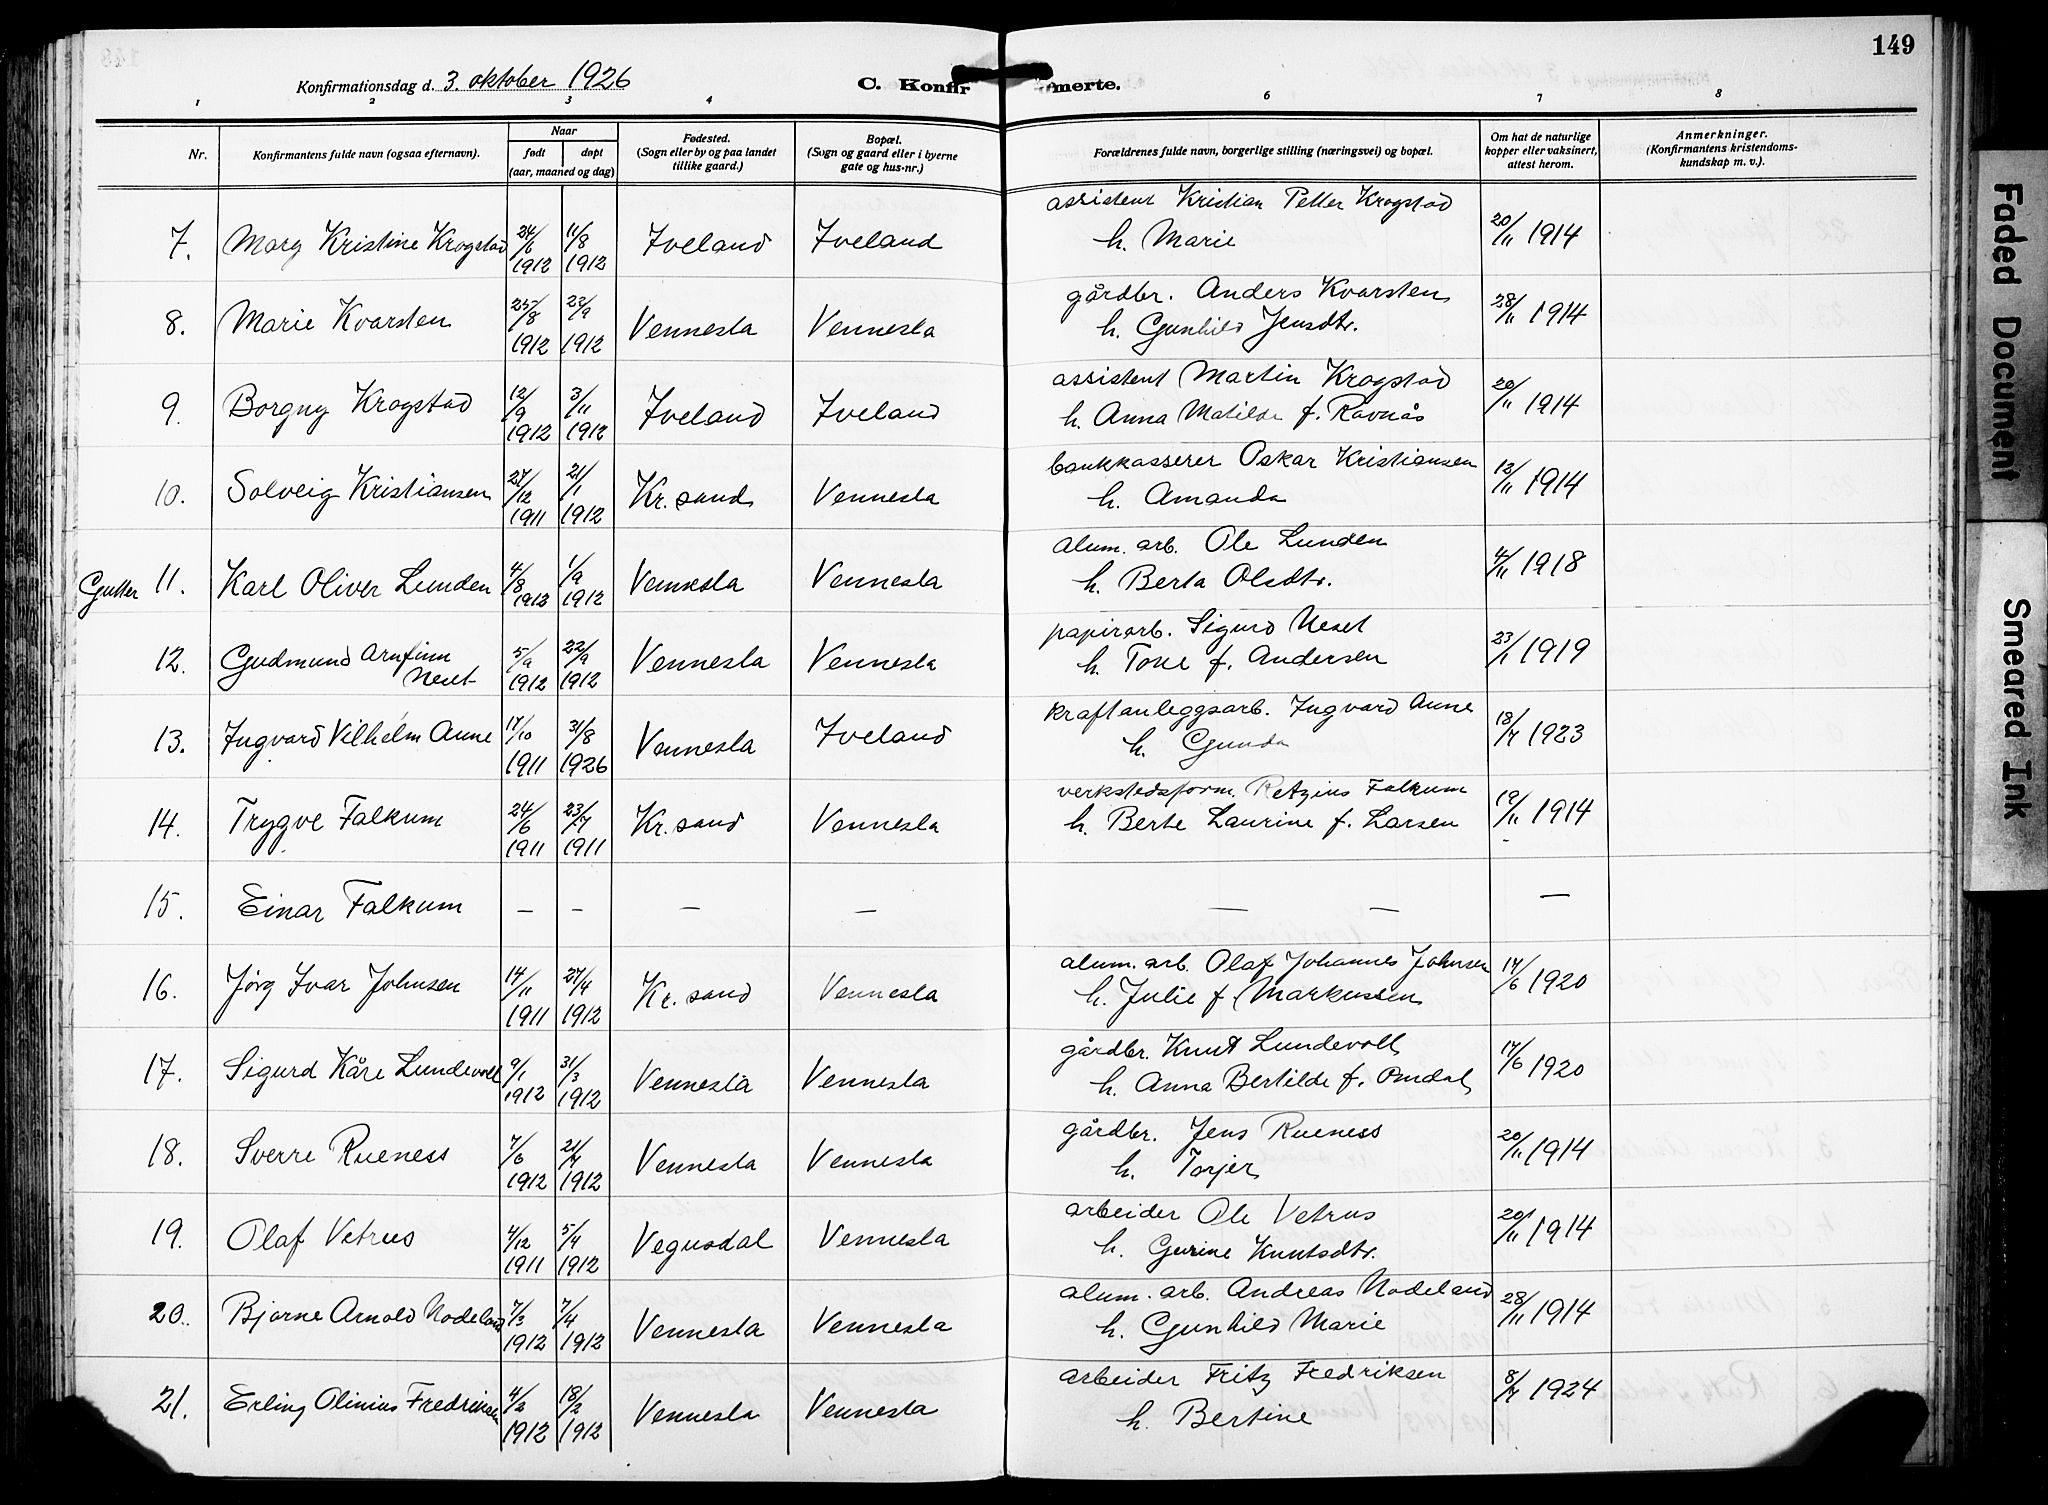 149
Konfirmationsdag d. 3. oktober 1926
C. Konfirmerte.
1 2 3 4 6 7 8
Nr.
Konfirmantens fulde navn (ogsaa efternavn).
Naar
født døpt
(aar, maaned og dag)
Fødested.
(Sogn eller by og paa landet
tillike gaard.)
Bopæl.
(Sogn og gaard eller i byerne
gate og hus-nr.)
Forældrenes fulde navn, borgerlige stilling (næringsvei) og bopæl.
Om hat de naturlige
kopper eller vaksinert,
attest herom.
Anmerkninger.
(Konfirmantens kristendoms-
kundskap m. v.).
7. Marg Kristine Krogstad 24/6 1912 11/8 1912 Iveland Iveland assistent Kristian Petter Krogstad
h. Marie 20/11 1914
8. Marie Kvarsten 25/8 1912 22/9 1912 Vennesla Vennesla gårdbr. Anders Kvarsten
h. Gunhild Jensdtr. 28/11 1914
9. Borgny Krogstad 12/9 1912 3/11 1912 Iveland Iveland assistent Martin Krogstad
h. Anna Matilde f. Ravnås 20/11 1914
10. Solveig Kristiansen 27/12 1911 21/1 1912 Kr.sand Vennesla bankkasserer Oskar Kristiansen
h. Amanda 12/11 1914
Gutter 11. Karl Oliver Lunden 4/8 1912 1/9 1912 Vennesla Vennesla alum. arb. Ole Lunden
h. Berta Olsdtr. 4/11 1918
12. Gudmund Arnfinn
Neset 5/9 1912 22/9 1912 Vennesla Vennesla papirarb. Sigurd Neset
h. Tone f. Andersen 23/1 1919
13. Ingvard Vilhelm Aune 17/10 1911 31/8 1926 Vennesla Iveland kraftanleggsarb. Ingvard Aune
h. Gunda 18/7 1923
14. Trygve Falkum 24/6 1911 23/7 1911 Kr.sand Vennesla verkstedsform. Retzius Falkum
h. Berte Laurine f. Larsen 19/11 1914
15. Einar Falkum — — — — — — —
16. Jørg Ivar Johnsen 14/11 1911 27/4 1912 Kr.sand Vennesla alum. arb. Olaf Johannes Johnsen
h. Julie f. Markussen 17/6 1920
17. Sigurd Kåre Lundevoll 9/1 1912 31/3 1912 Vennesla Vennesla gårdbr. Knut Lundevoll
h. Anna Bertilde f. Omdal 17/6 1920
18. Sverre Rueness 7/6 1912 21/7 1912 Vennesla Vennesla gårdbr. Jens Rueness
h. Torjer 20/11 1914
19. Olaf Vetrus 4/12 1911 5/4 1912 Vegusdal Vennesla arbeider Ole Vetrus
h. Gurine Knutsdtr. 20/11 1914
20. Bjarne Arnold Nodeland 7/3 1912 7/4 1912 Vennesla Vennesla alum. arb. Andreas Nodeland
h. Gunhild Marie 28/11 1914
21. Erling Olinius Fredriksen 4/2 1912 18/2 1912 Vennesla Vennesla arbeider Fritz Fredriksen
h. Bertine 8/7 1924
Faded Document
Smeared Ink